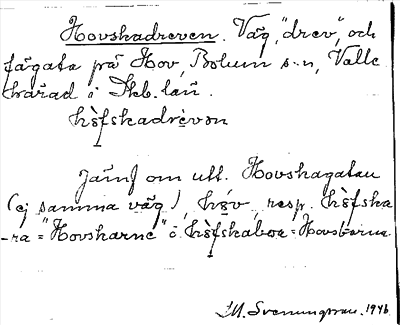 Hovskadreven. Väg, "drev", och
fägata på Hov, Bolum s:n, Valle
härad i Skb. län.
hòfskadrèvən
Jämf om utt. Hovskagatan
(ej samma väg), hóv, resp. hòfska-
-ra = "Hovskarne" o. hòfskaboa = Hovsborna.
M. Svenungsson. 1946